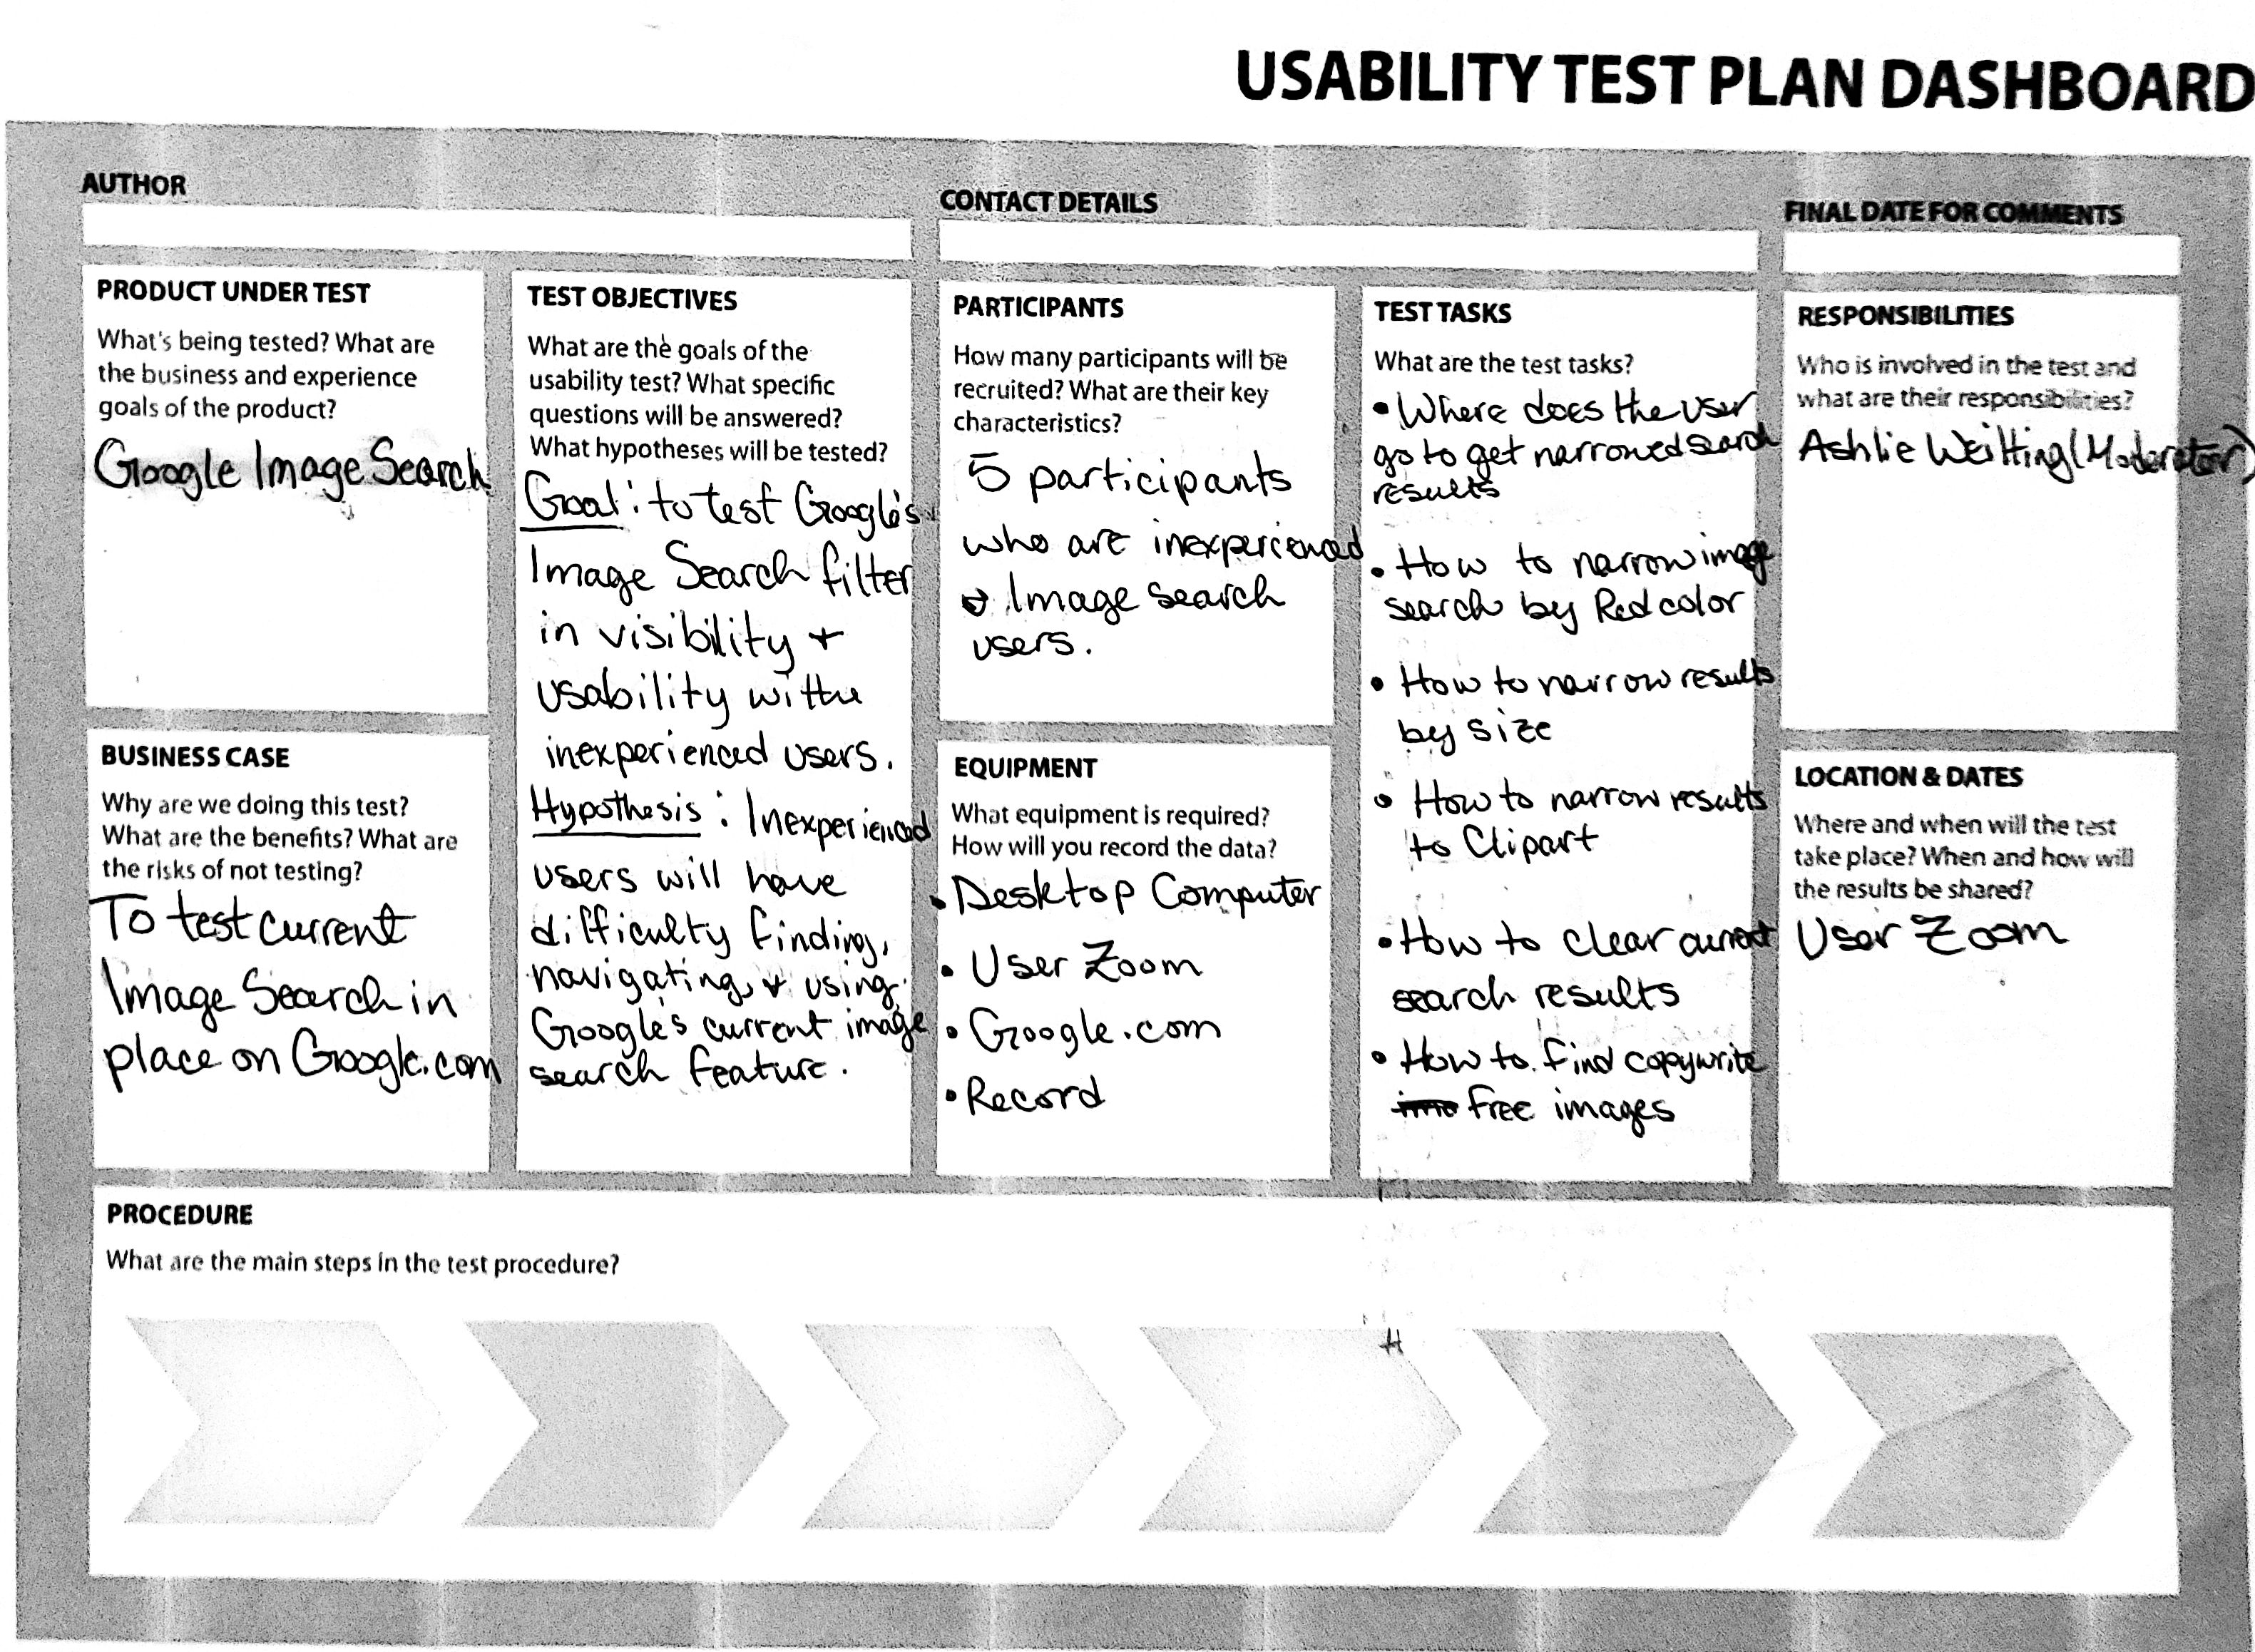 USABILITY TEST PLAN DASHBOARD
AUTHOR
CONTACT DETAILS
FINAL DATE FOR COMMENTS
PRODUCT UNDER TEST
What's being tested? What are
the business and experience
goals of the product?
Google Image Search
BUSINESS CASE
Why are we doing this test?
What are the benefits? What are
the risks of not testing?
To test current
Image Search in
place on Google.com
TEST OBJECTIVES
What are the goals of the
usability test? What specific
questions will be answered?
What hypotheses will be tested?
Goal: to test Google's
Image Search filter
in visibility +
usability with
inexperienced users.
Hypothesis: Inexperienced
users will have
difficulty finding,
navigating, + using
Google's current image
search feature.
PARTICIPANTS
How many participants will be
recruited? What are their key
characteristics?
5 participants
who are inexperienced
Image search
users.
EQUIPMENT
What equipment is required?
How will you record the data?
• Desktop Computer
• User Zoom
• Google.com
• Record
TEST TASKS
What are the test tasks?
• Where does the user
go to get narrowed search
results
• How to narrow image
search by Red color
• How to narrow results
by size
• How to narrow results
to Clipart
• How to clear current
search results
• How to find copywrite
free images
RESPONSIBILITIES
Who is involved in the test and
what are their responsibilities?
Ashlie (Moderator)
LOCATION & DATES
Where and when will the test
take place? When and how will
the results be shared?
User Zoom
PROCEDURE
What are the main steps in the test procedure?